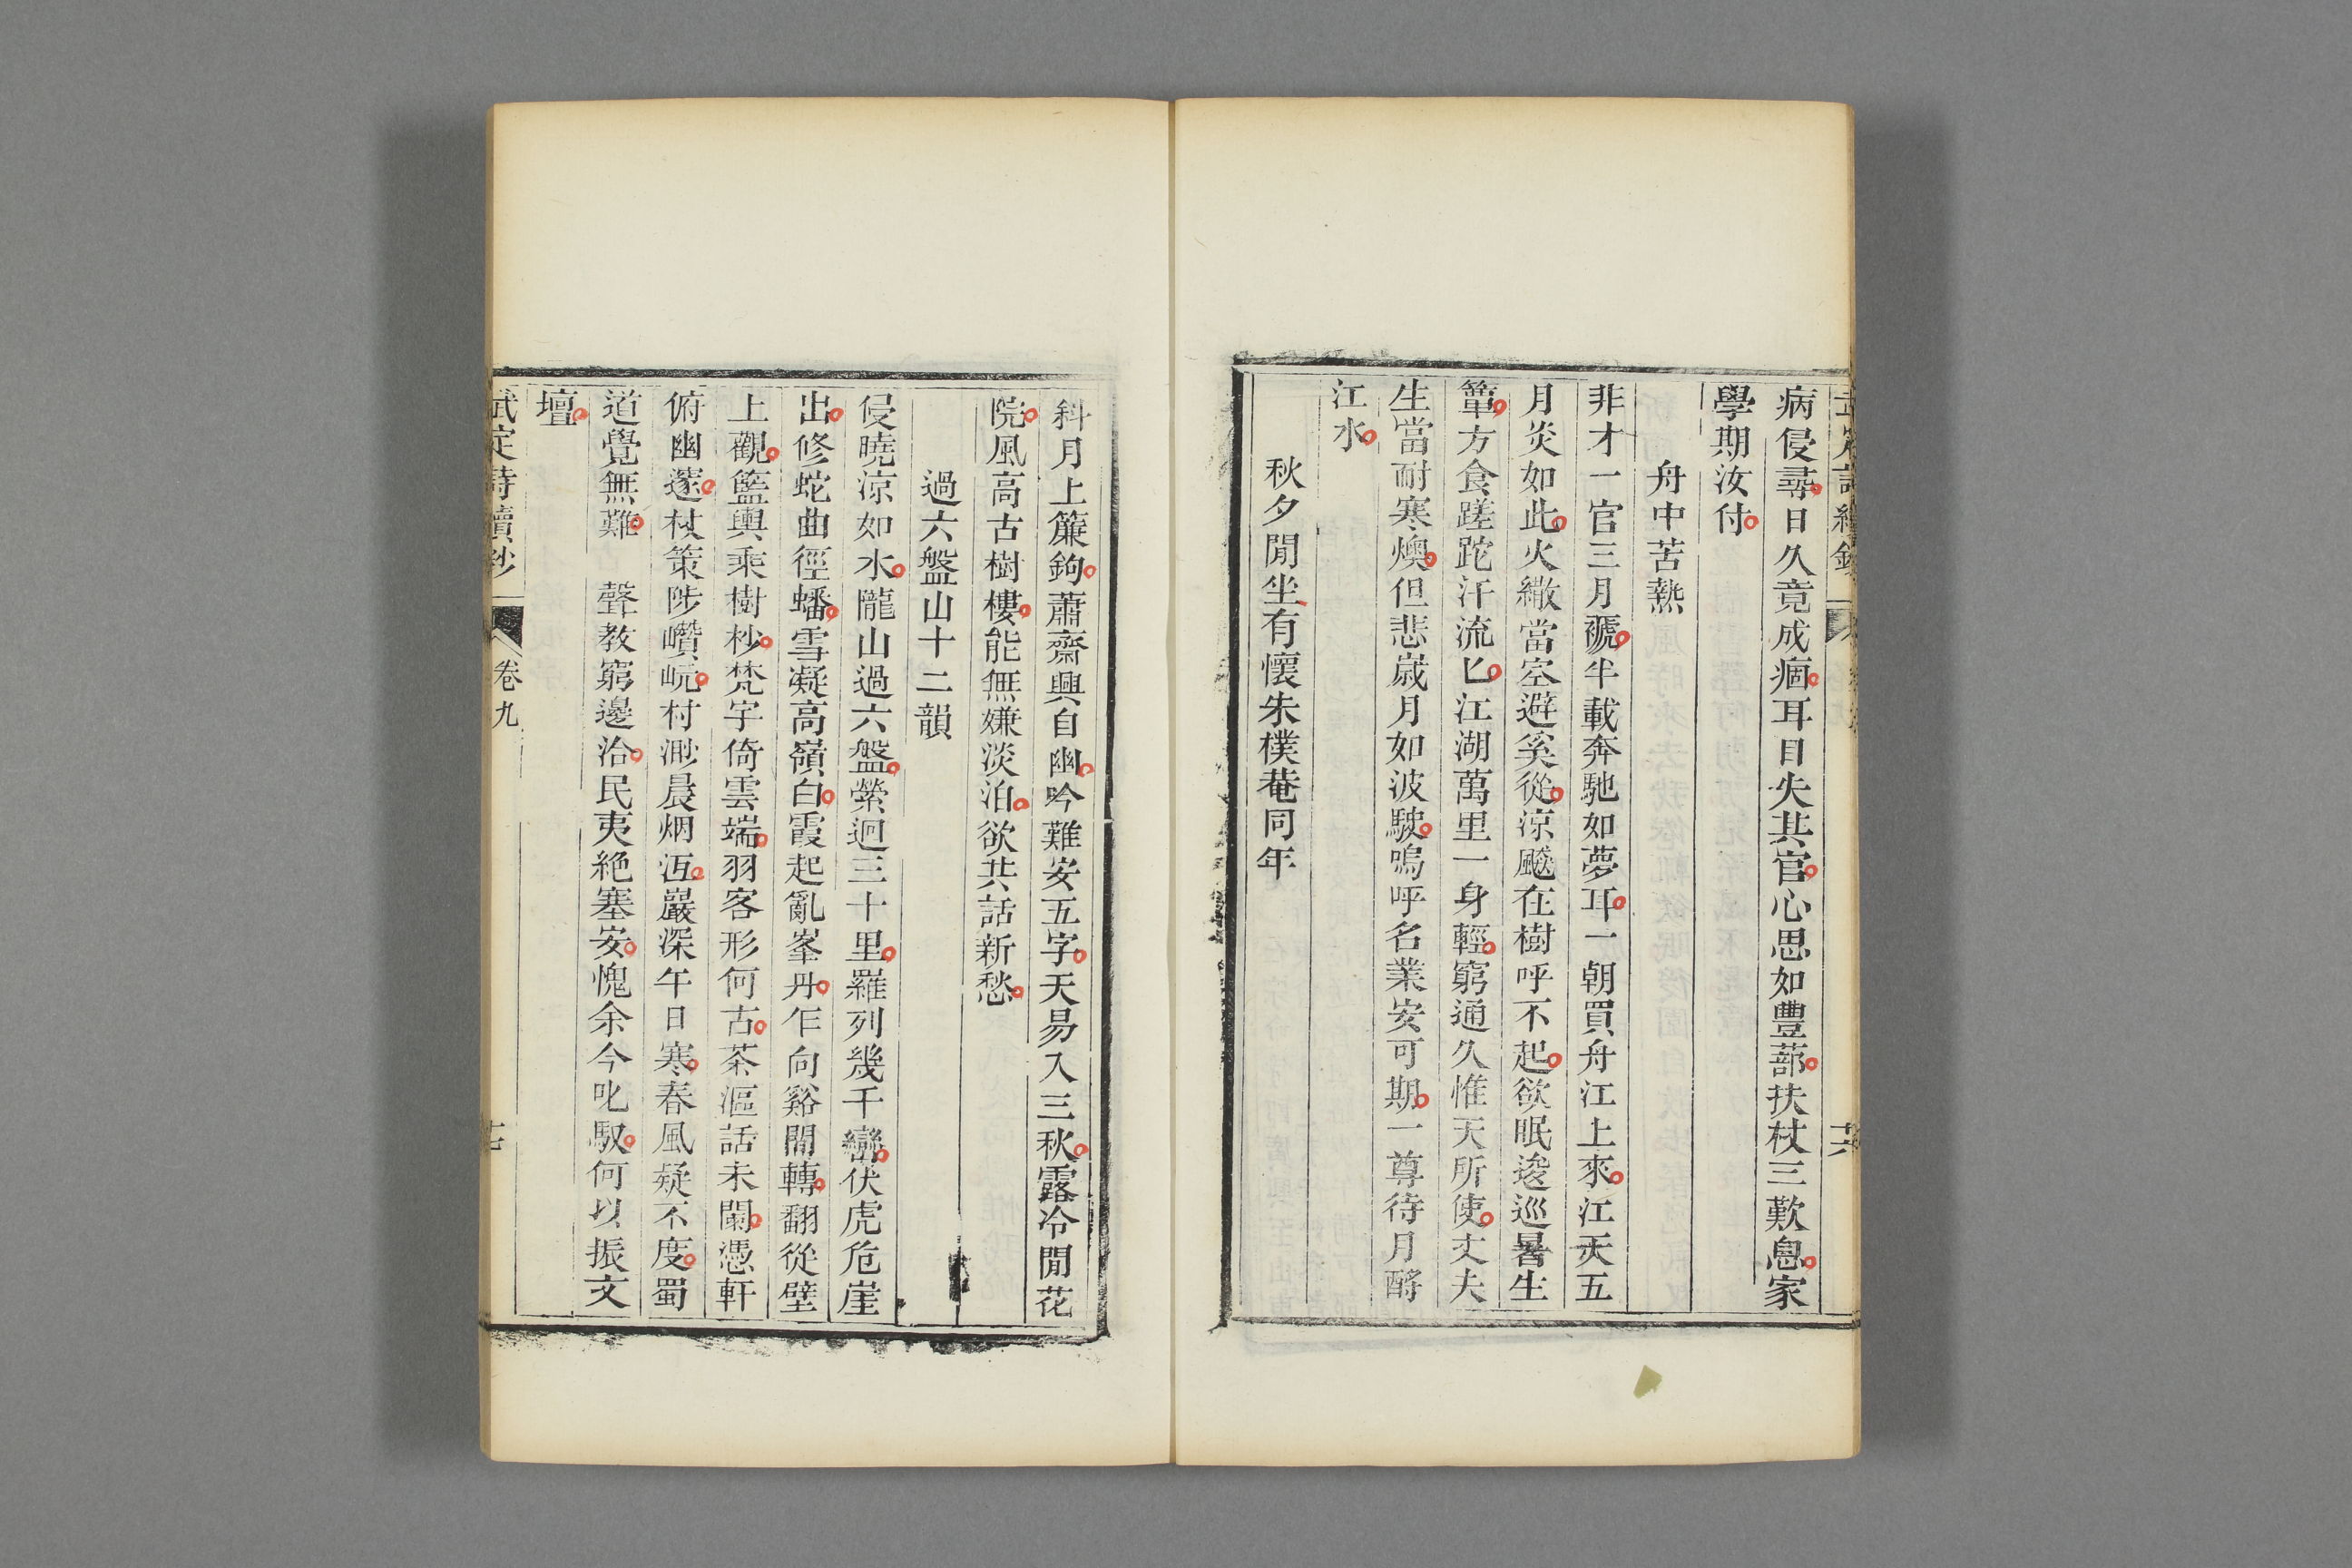 病侵尋日久竟成痼耳目失其官心思如豐蔀扶杖三歎息家
學期汝付
舟中苦熱
非才一官三月褫半載奔馳如夢耳一朝買舟江上來江天五
月炎如此火繖當空避奚從涼飈在樹呼不起欲眠逡巡暑生
簟方食蹉跎汗流匕江湖萬里一身輕窮通久惟天所使丈夫
生當耐寒燠但悲歲月如波駛嗚呼名業安可期一尊待月酹
江水
秋夕閒坐有懷朱樸菴同年
斜月上簾鉤蕭齋興自幽吟難安五字天易入三秋露冷閒花
院風高古樹樓能無嫌淡泊欲共話新愁
過六盤山十二韻
侵曉涼如水隴山過六盤縈迴三十里羅列幾千巒伏虎危崖
出修蛇曲徑蟠雪凝高嶺白霞起亂峯丹乍向谿間轉翻從壁
上觀籃輿乘樹杪梵宇倚雲端羽客形何古茶漚話未闌憑軒
俯幽邃杖策陟巑岏村渺晨烟沍巖深午日寒春風疑不度蜀
道覺無難 聲教窮邊洽民夷絕塞安愧余今叱馭何以振文
壇
武定詩續鈔 卷九